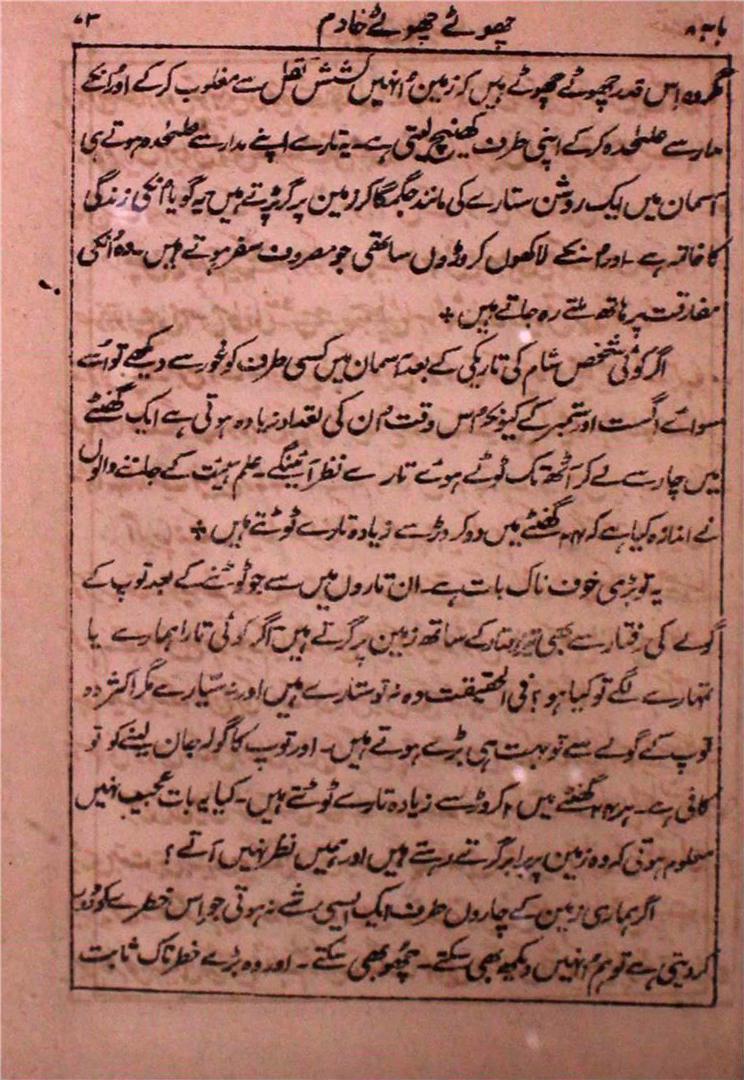 باب ۸ چھوٹے چھوٹے خادم ۷۳
گروہ اِس قدر چھوٹے چھوٹے ہیں کہ زمین اُنہیں کشش ثقل سے مغلوب کرکے اور اُنکے
مدار سے علیٰحدہ کرکے اپنی طرف کھینچ لیتی ہے۔ یہ تارے اپنے مدار سے علیٰحدہ ہوتے ہی
آسمان میں ایک روشن ستارے کی مانند جگمگا کر زمین پر گر پڑتے ہیں یہ گویا اُنکی زندگی
کا خاتمہ ہے۔ اور اُنکے لاکھوں کروڑوں ساتھی جو مصروف سفر ہوتے ہیں۔ وہ اُنکی
مفارقت پر ہاتھ ملتے رہ جاتے ہیں +
اگر کوئی شخص شام کی تاریکی کے بعد آسمان میں کسی طرف کو غور سے دیکھے تو اُسے
سوائے اگست اور ستمبر کے کیونکہ اس وقت ان کی تعداد زیادہ ہوتی ہے ایک گھنٹے
میں چار سے لے کر آٹھ تک ٹوٹے ہوئے تارے نظر آئینگے۔ علم ہیئت کے جاننے والوں
نے اندازہ کیا ہے کہ ۲۴ گھنٹے میں دو کروڑ سے زیادہ تارے ٹوٹتے ہیں +
یہ تو بڑی خوف ناک بات ہے۔ ان تاروں میں سے جو ٹوٹنے کے بعد توپ کے
گولے کی رفتار سے بھی تیز رفتار کے ساتھ زمین پر گرتے ہیں اگر کوئی تارا ہمارے یا
تمہارے لگے تو کیا ہو؟ فی الحقیقت وہ نہ تو ستارے ہیں اور نہ سیّارے مگر اکثر وہ
توپ کے گولے سے تو بہت ہی بڑے ہوتے ہیں۔ اور توپ کا گولہ جان لینے کو تو
کافی ہے۔ ہر ۲۴ گھنٹے میں ۲ کروڑ سے زیادہ تارے ٹوٹتے ہیں۔ کیا یہ بات عجیب نہیں
معلوم ہوتی کہ وہ زمین پر برابر گرتے رہتے ہیں اور ہمیں نظر نہیں آتے؟
اگر ہماری زمین کے چاروں طرف ایک ایسی شے نہ ہوتی جو اِس خطرے کو دُور
کر دیتی ہے تو ہم اُنہیں دیکھ بھی سکتے۔ چُھو بھی سکتے۔ اور وہ بڑے خطرناک ثابت